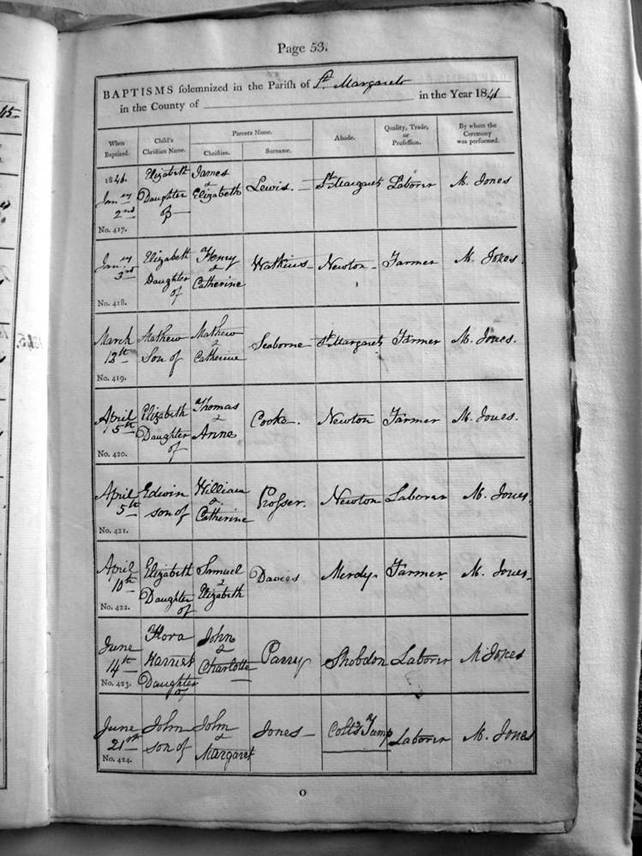 45
Page 53.
BAPTISMS solemnized in the Parish of St. Margarets
in the County of in the Year 1841
When Baptized. Child's Christian Name. Parents Name. Abode. Quality, Trade, or Profession. By whom the Ceremony was performed.
Christian. Surname.
1841 Elizabeth James
Jany Daughter & Lewis. St Margarets Laborer M. Jones
2nd of Elizabeth
No. 417.
Jany Elizabeth Henry
3rd Daughter & Watkins Newton Farmer M. Jones.
of Catherine
No. 418.
March Mathew Mathew
12th Son of & Seaborne St Margarets Farmer M. Jones.
Catherine
No. 419.
April Elizabeth Thomas
5th Daughter & Cooke. Newton Farmer M. Jones.
of Anne
No. 420.
April Edwin William
5th son of & Prosser. Newton Laborer M. Jones.
Catherine
No. 421.
April Elizabeth Samuel
10th Daughter & Davies Merdy. Farmer. M. Jones.
of Elizabeth
No. 422.
June Flora John
14th Harriet & Parry Shobdon Laborer M Jones
Daughter of Charlotte
No. 423.
June John John
21st son of & Jones Colts Tump Laborer M. Jones
Margaret
No. 424.